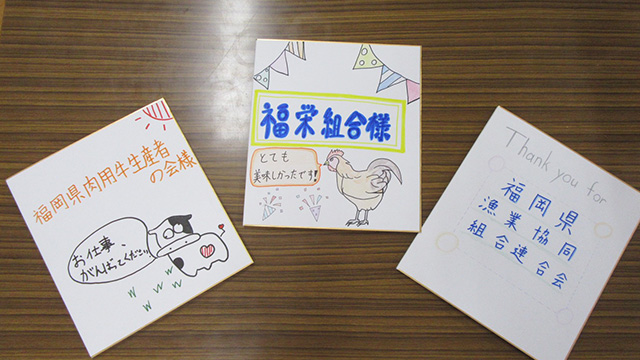 福岡県肉用牛生産者
の会様
お仕事、
がんばってください
福栄組合様
とても
美味しかったです!
Thank you for
福岡県
漁業協同
組合連合会